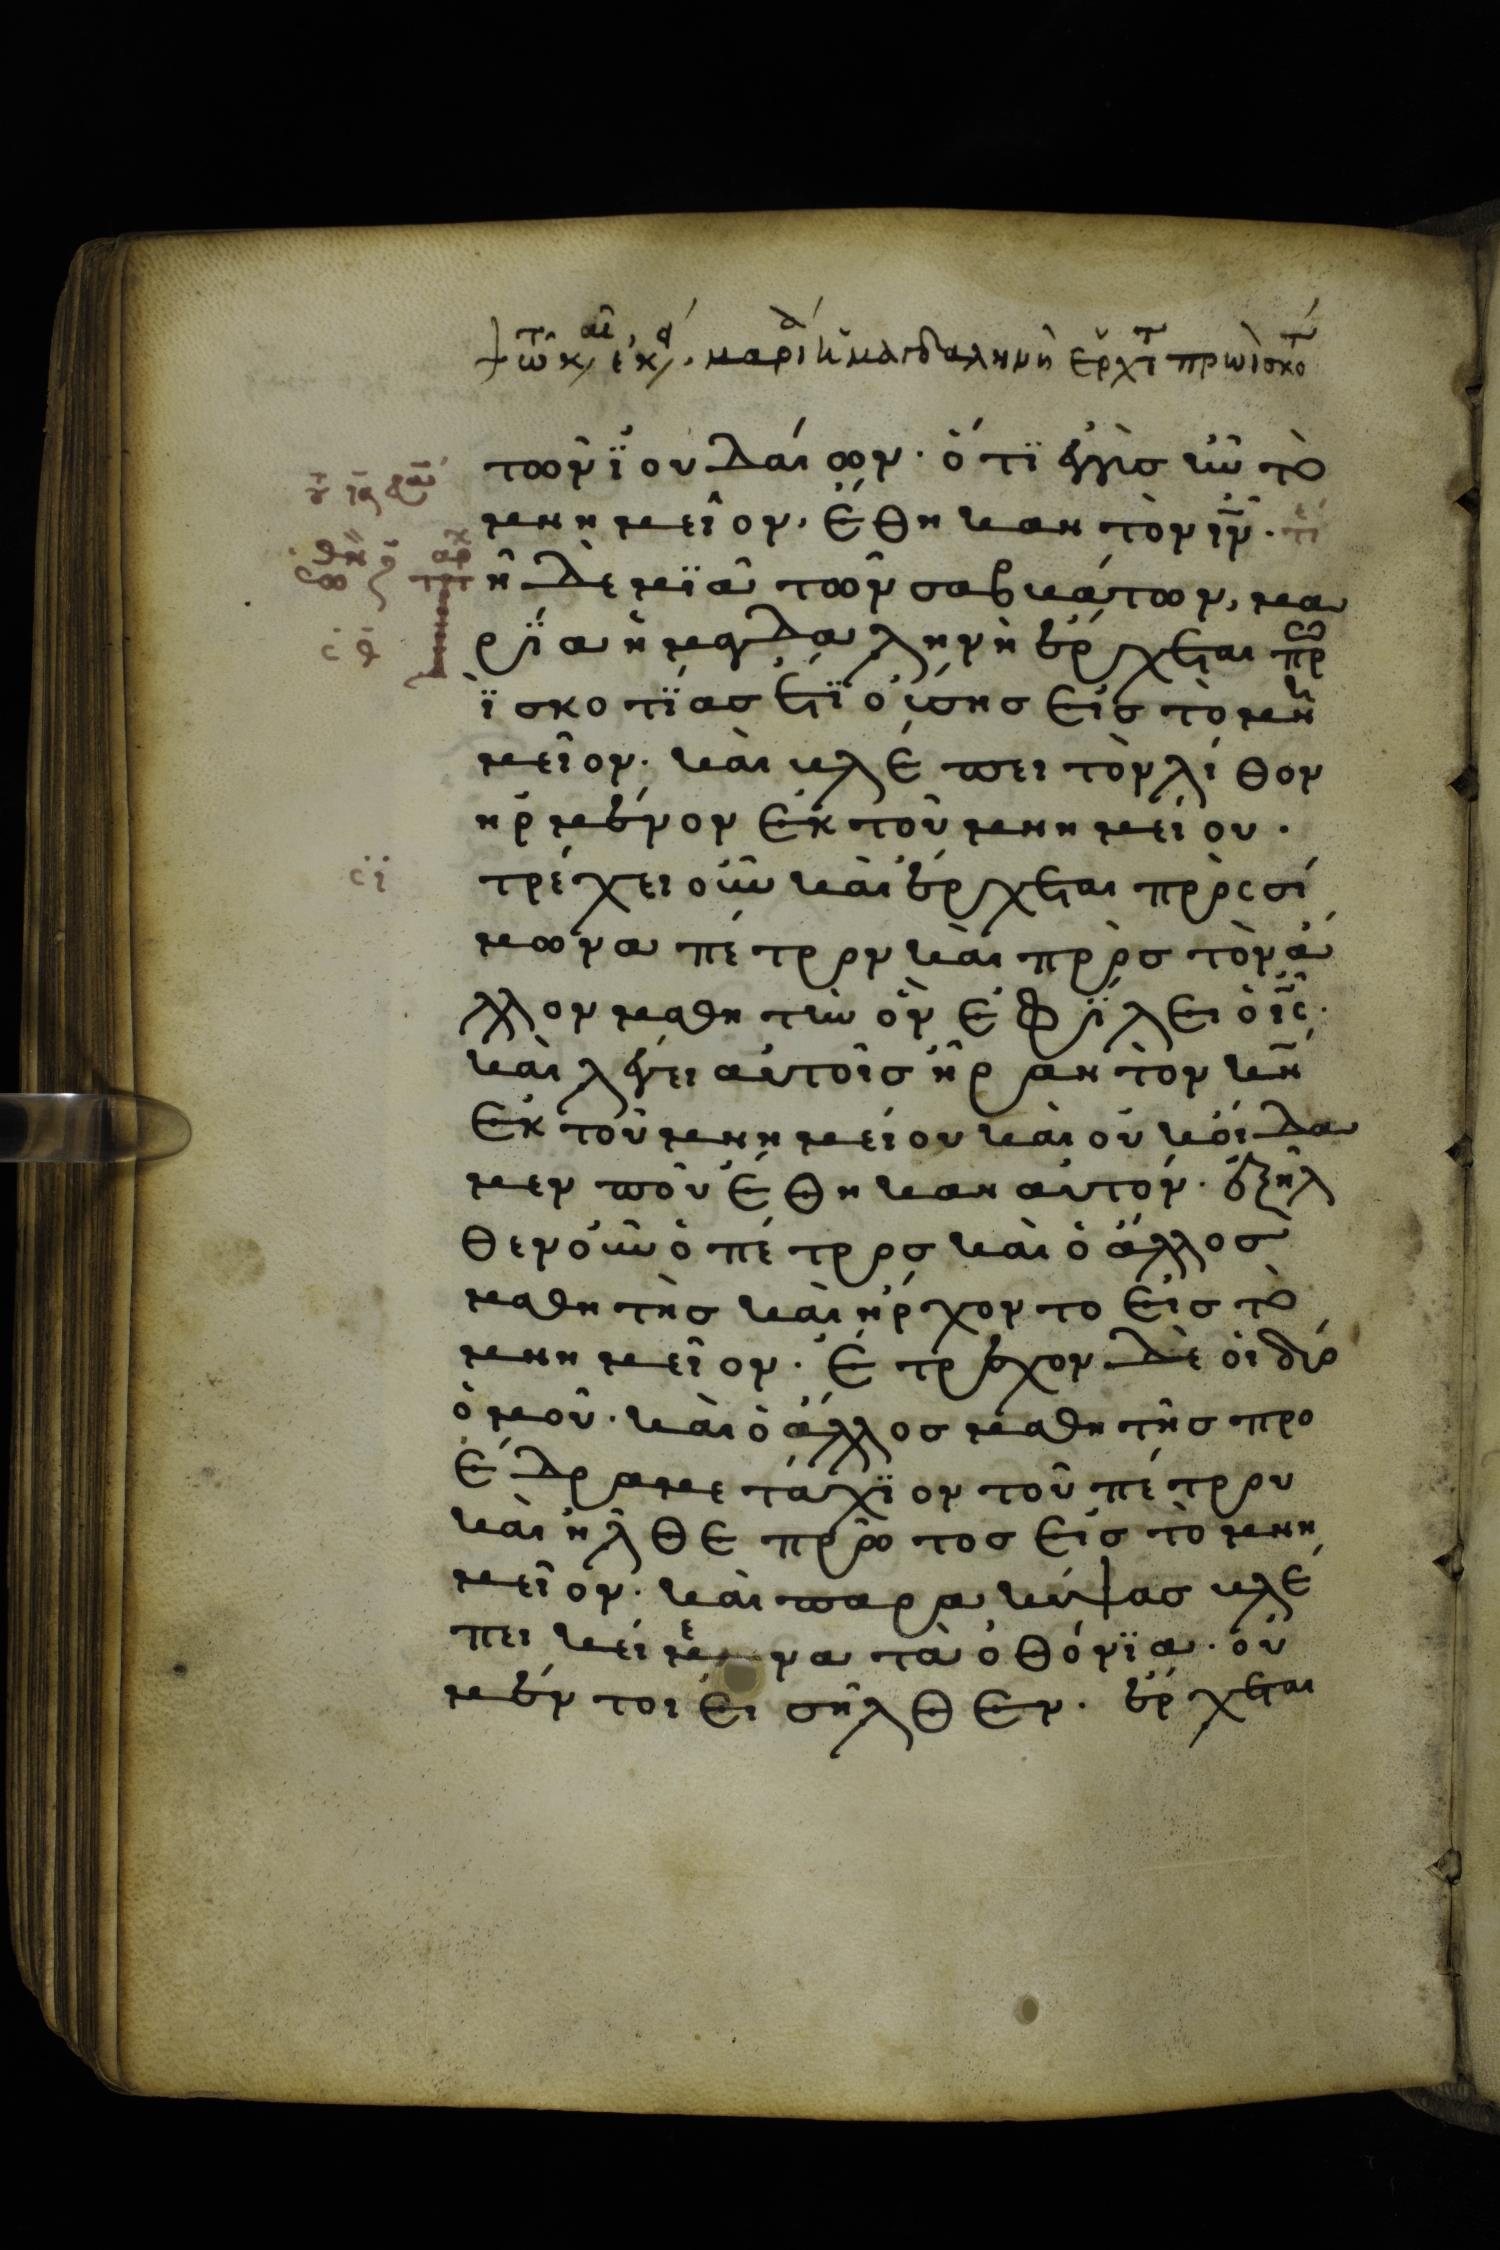 τῶ κ, ἐκ, μαρί ἡ μαγδαληνὴ ἔρχτ πρωὶ σκο
τῶν ἰουδαίων· ὅτι ἐγγὺς ἦν τὸ
μνημεῖον, ἔθηκαν τὸν ιν· τε
τῆ δὲ μϊᾶ τῶν σαββάτων, μα
ρΐα ἡ μαγδαληνὴ ἔρχεται πρω
ῒ σκοτΐας ἔτϊ οὔσης εἰς τὸ μνη
μεῖον· καὶ βλέπει τὸν λίθον
ἠρμένον ἐκ τοῦ μνημείου·
σι τρέχει οὖν καὶ ἔρχεται πρὸς σί
μωνα πέτρον καὶ πρὸς τὸν ἄ
λλον μαθητὴν ὃν ἐφΐλει ὁ ις·
καὶ λέγει αὐτοῖς ἦραν τὸν κν
ἐκ τοῦ μνημείου καὶ οὐκ οἴδα
μεν ποῦ ἔθηκαν αὐτόν· ἐξῆλ
θεν οὖν ὁ πέτρος καὶ ὁ ἄλλος
μαθητὴς καὶ ἤρχοντο εἰς τὸ
μνημεῖον· ἔτρεχον δὲ οἱ δύο
ὁμοῦ· καὶ ὁ ἄλλος μαθητῆς προ
έδραμε τάχϊον τοῦ πέτρου
καὶ ἦλθε πρῶτος εἰς τὸ μνη
μεῖον· καὶ παρακύψας βλέ
πει κείμενα τὰ ὀθόνϊα· οὐ
μέντοι εἰσῆλθεν· ἔρχεται